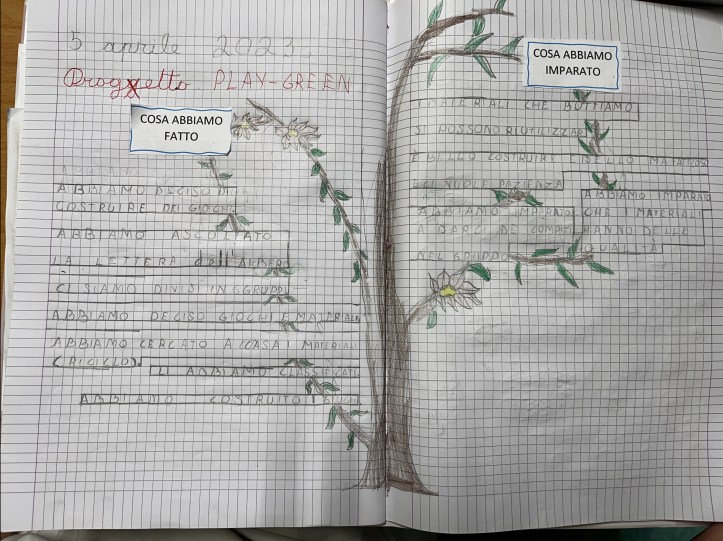 5 aprile 2023
Progxetto PLAY-GREEN
COSA ABBIAMO
FATTO
ABBIAMO DECISO DI
COSTRUIRE DEI GIOCHI
ABBIAMO ASCOLTATO
LA LETTERA dell'ALBERO
CI SIAMO DIVISI IN GGRUPPI
ABBIAMO DECISO GIOCHI E MATERIALI
ABBIAMO CERCATO A CASA I MATERIALI
(RICICLO)
LI ABBIAMO CLASSIFICATI
ABBIAMO COSTRUITO I GIOCHI
COSA ABBIAMO
IMPARATO
I MATERIALI CHE BUTTIAMO
SI POSSONO RIUTILIZZARE
È BELLO COSTRUIRE È BELLO MA FATICOSO
CI VUOLE PAZIENZA
ABBIAMO IMPARATO
A DARCI DEI COMPITI
NEL GRUPPO
ABBIAMO IMPARATO
CHE I MATERIALI
HANNO DELLE
QUALITÀ